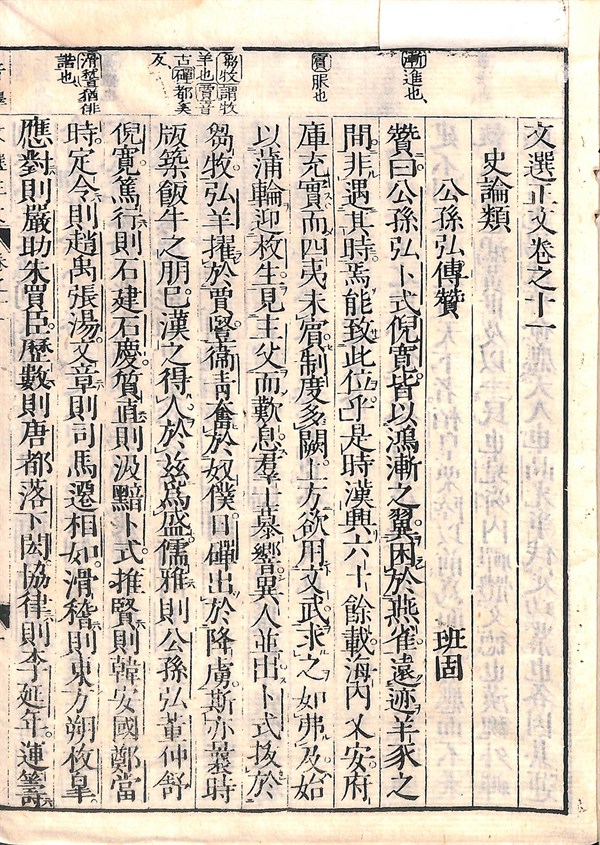 漸進也
賓服也
芻牧謂牧
羊也賈音
古磾都奚
反
滑稽猶俳
諧也
文選正文卷之十一
史論類
公孫弘傳贊 班固
贊曰公孫弘卜式倪寬皆以鴻漸之翼困於燕雀遠迹羊豕之
間非遇其時焉能致此位乎是時漢興六十餘載海內乂安府
庫充實而四夷未賓制度多闕上方欲用文武求之如弗及始
以蒲輪迎枚生見主父而歎息羣士慕響異人並出卜式拔於
芻牧弘羊擢於賈豎衞青奮於奴僕日磾出於降虜斯亦曩時
版築飯牛之朋已漢之得人於茲爲盛儒雅則公孫弘董仲舒
倪寬篤行則石建石慶質直則汲黯卜式推賢則韓安國鄭當
時定令則趙禹張湯文章則司馬遷相如滑稽則東方朔枚皐
應對則嚴助朱買臣歷數則唐都落下閎協律則李延年運籌